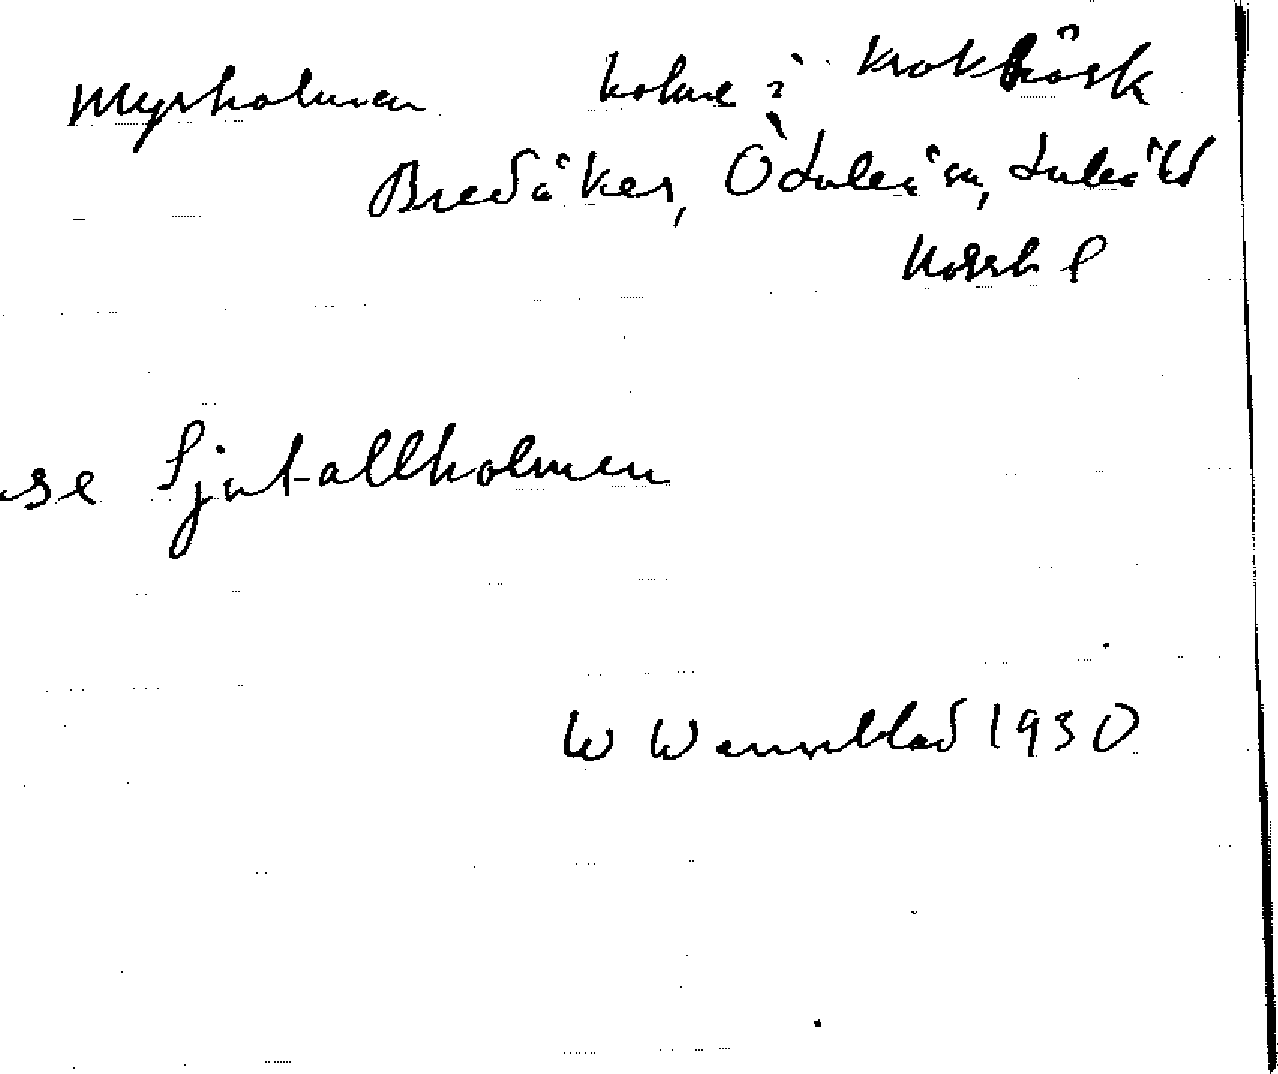 Myrholmen holme i Krokträsk
Bredåker, Ö Luleå sn, Luleå tl
Norrb l
se Sjutallholmen
W Wennerblad 1930